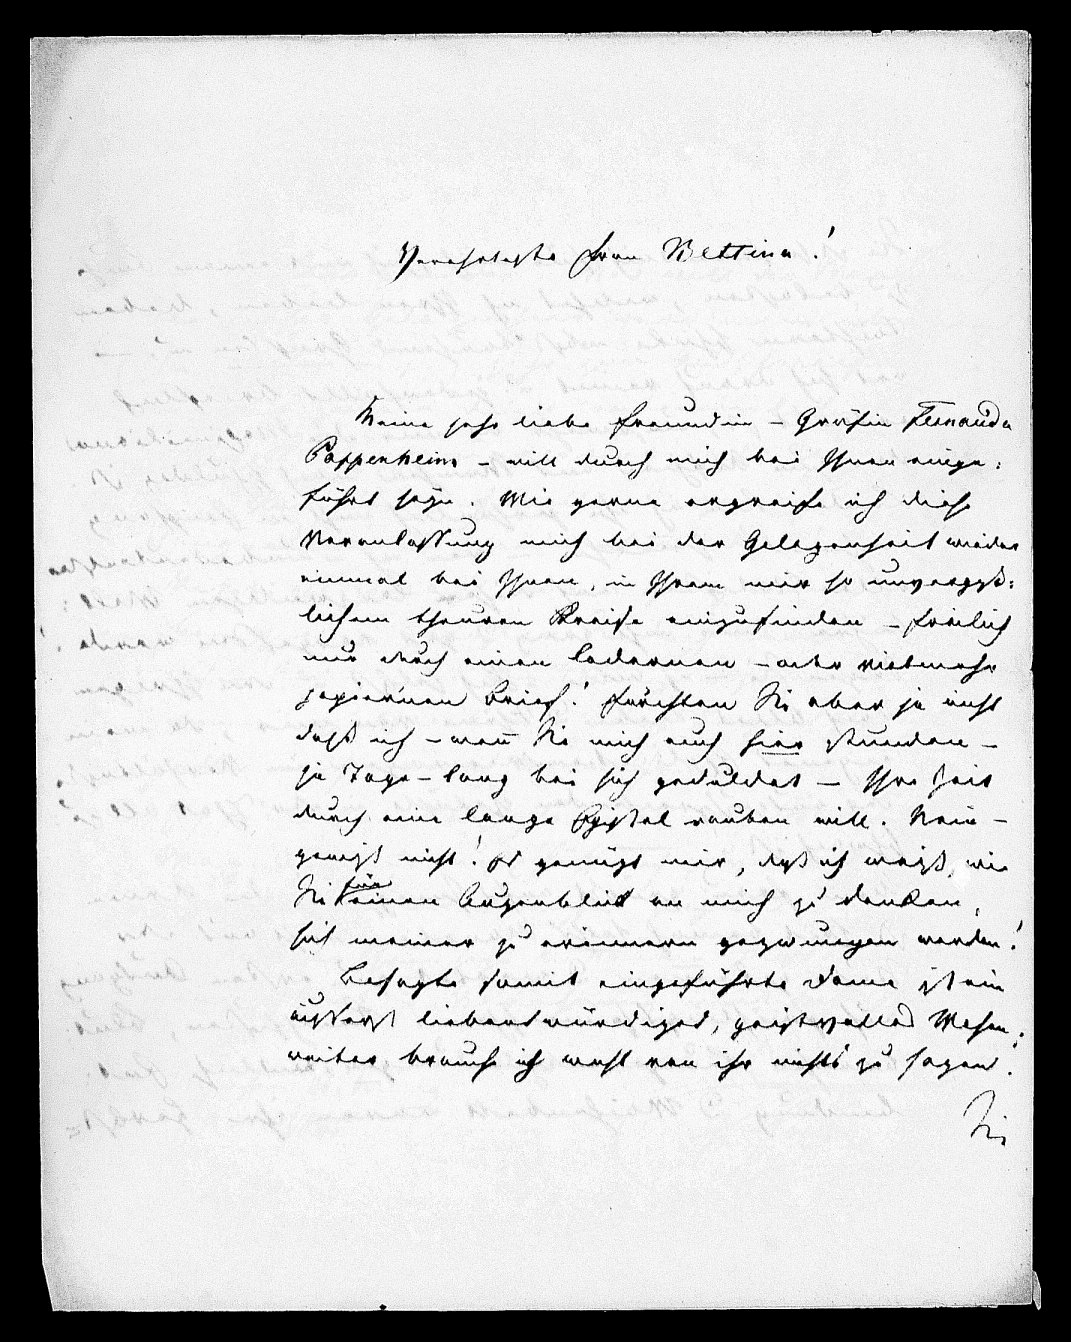 Verehrteste Frau Bettina!
Meine sehr liebe Freundin – Gräfin Fernanda
Pappenheim – will durch mich bei Ihnen einge:
führt seyn. Wie gerne ergreife ich diese
Veranlassung mich bei der Gelegenheit wieder
einmal bei Ihnen, in Ihrem mir so unvergeß:
lichem theuren Kreise einzufinden – freilich
nur durch einen ledernen – oder vielmehr
papiernen Brief! Fürchten Sie aber ja nicht
daß ich – wen̅ Sie mich auch hier Stunden –
ja Tage – lang bei sich geduldet – Ihre Zeit
durch eine lange Epistel rauben will. Nein –
gewiß nicht! Es genügt mir, daß ich weiß, wie
Sie für einen Augenblick an mich zu denken,
sich meiner zu erinnern gezwungen werden!
Besagte somit eingeführte Dame ist ein
äusserst liebenswürdiges, geistvolles Wesen;
weiter brauche ich wohl von ihr nichts zu sagen!
Sie